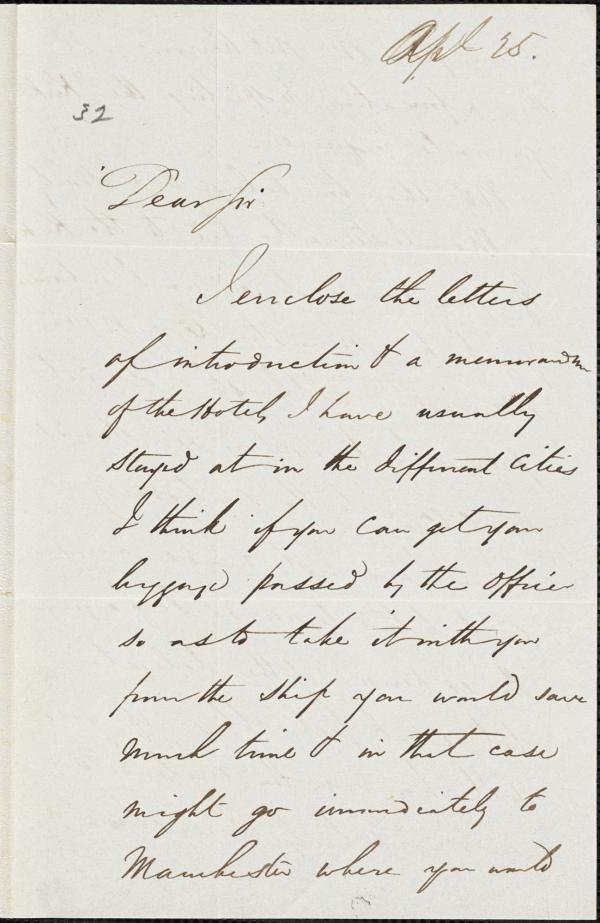 Apl 25.
32
Dear Sir
I enclose the letters
of introduction & a memorandum
of the Hotels I have usually
stayed at in the different Cities
I think if you can get your
luggage passed by the officer
so as to take it with you
from the ship you would save
much time & in that case
might go immediately to
Manchester where you would